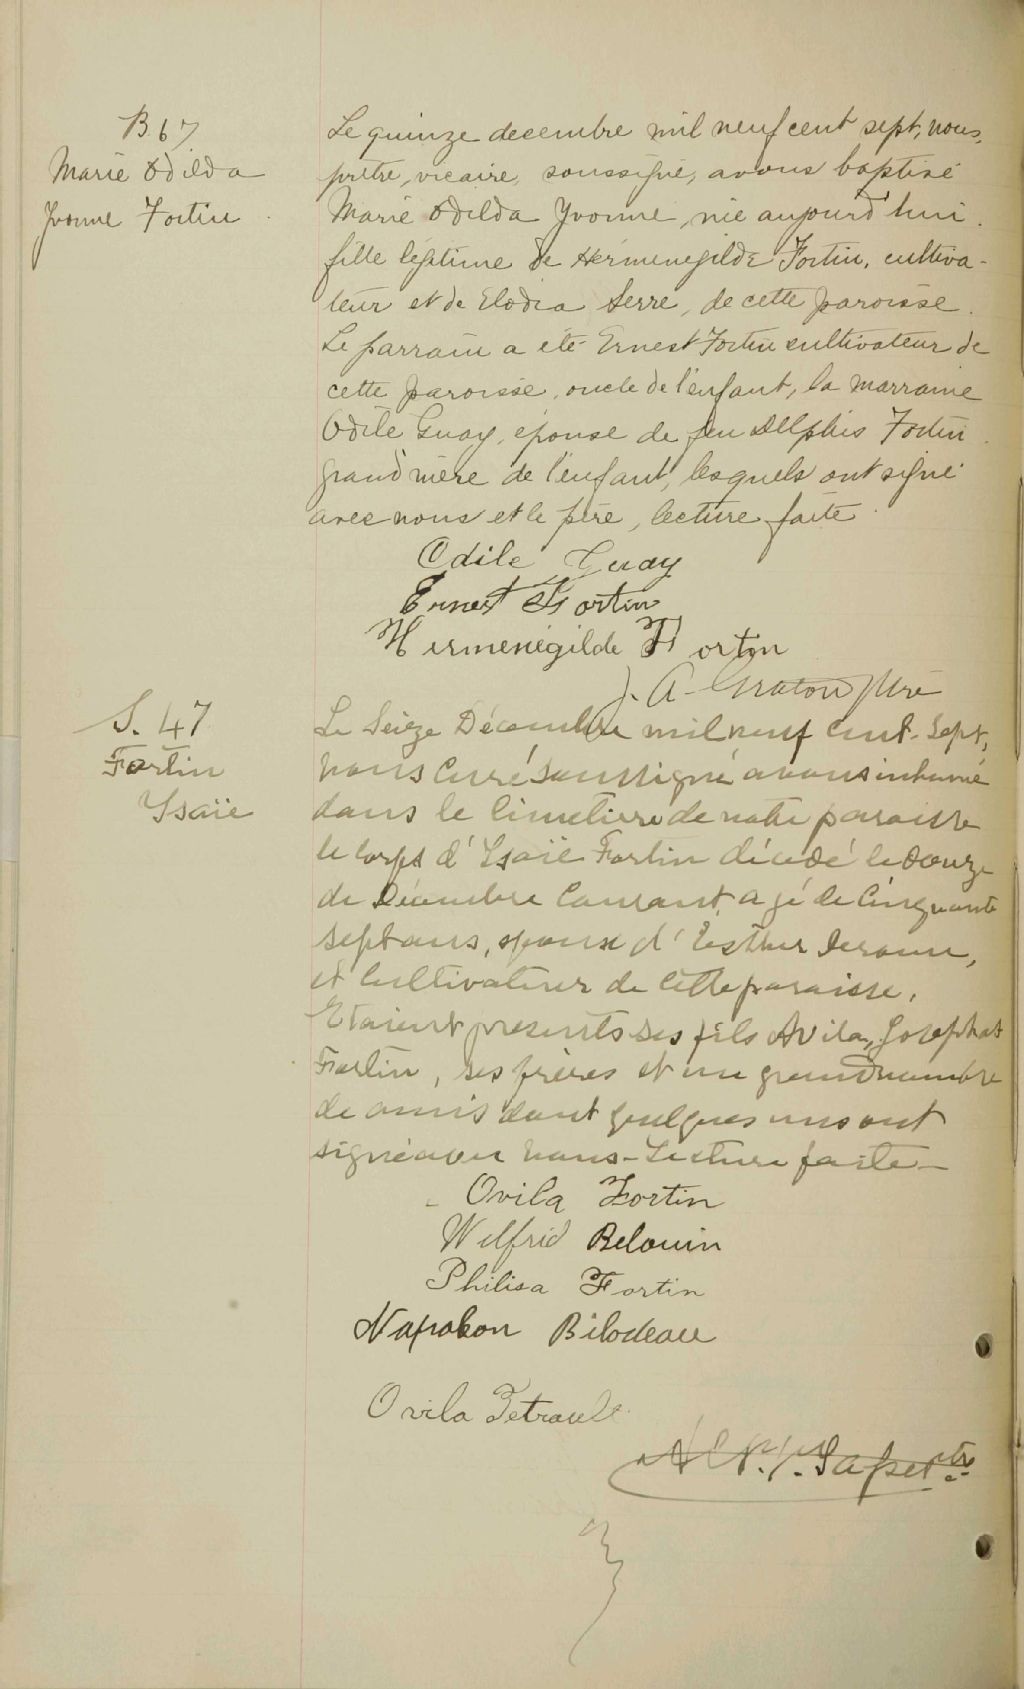 B. 67
Marie Odilda
Yvonne Fortin
Le quinze decembre mil neuf cent sept, nous,
prêtre, vicaire, soussigné, avons baptisé
Marie Odilda Yvonne, née aujourd'hui
fille légitime de Herménégilde Fortin, cultiva-
teur et de Elodia Serre, de cette paroisse.
Le parrain a été Ernest Fortin cultivateur de
cette paroisse, oncle de l'enfant, la marraine
Odile Guay, épouse de feu Delphis Fortin
grand'mère de l'enfant, lesquels ont signé
avec nous et le père, lecture faite.
Odile Guay
Ernest Fortin
Hermenégilde Fortin
J. A. Graton ptre
S. 47
Fortin
Ysaïe
Le Seize Décembre mil neuf cent-sept,
nous Curé soussigné avons inhumé
dans le Cimetiere de notre paroisse
le corps d'Ysaïe Fortin décédé le douze
de Décembre Courant, agé de Cinquante
sept ans, epoux d'Esther
et Cultivateur de Cette paroisse.
Etaient presents ses fils Avila, Josephat
Fortin, ses frères et un grand nombre
de amis dont quelques uns ont
signé avec nous - Lecture faite -
Ovila Fortin
Wilfrid Belouin
Philisa Fortin
Napoleon Bilodeau
Ovila Tetrault